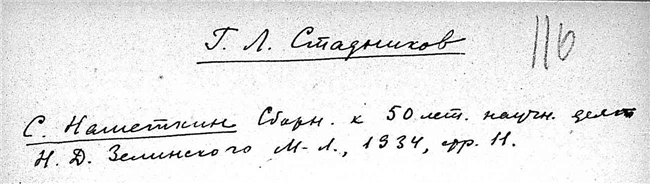 Г. Л. Стадников
116
С. Наметкин Сборн. к 50 лет. научн. деят
Н. Д. Зелинского М-Л., 1934, стр. 11.